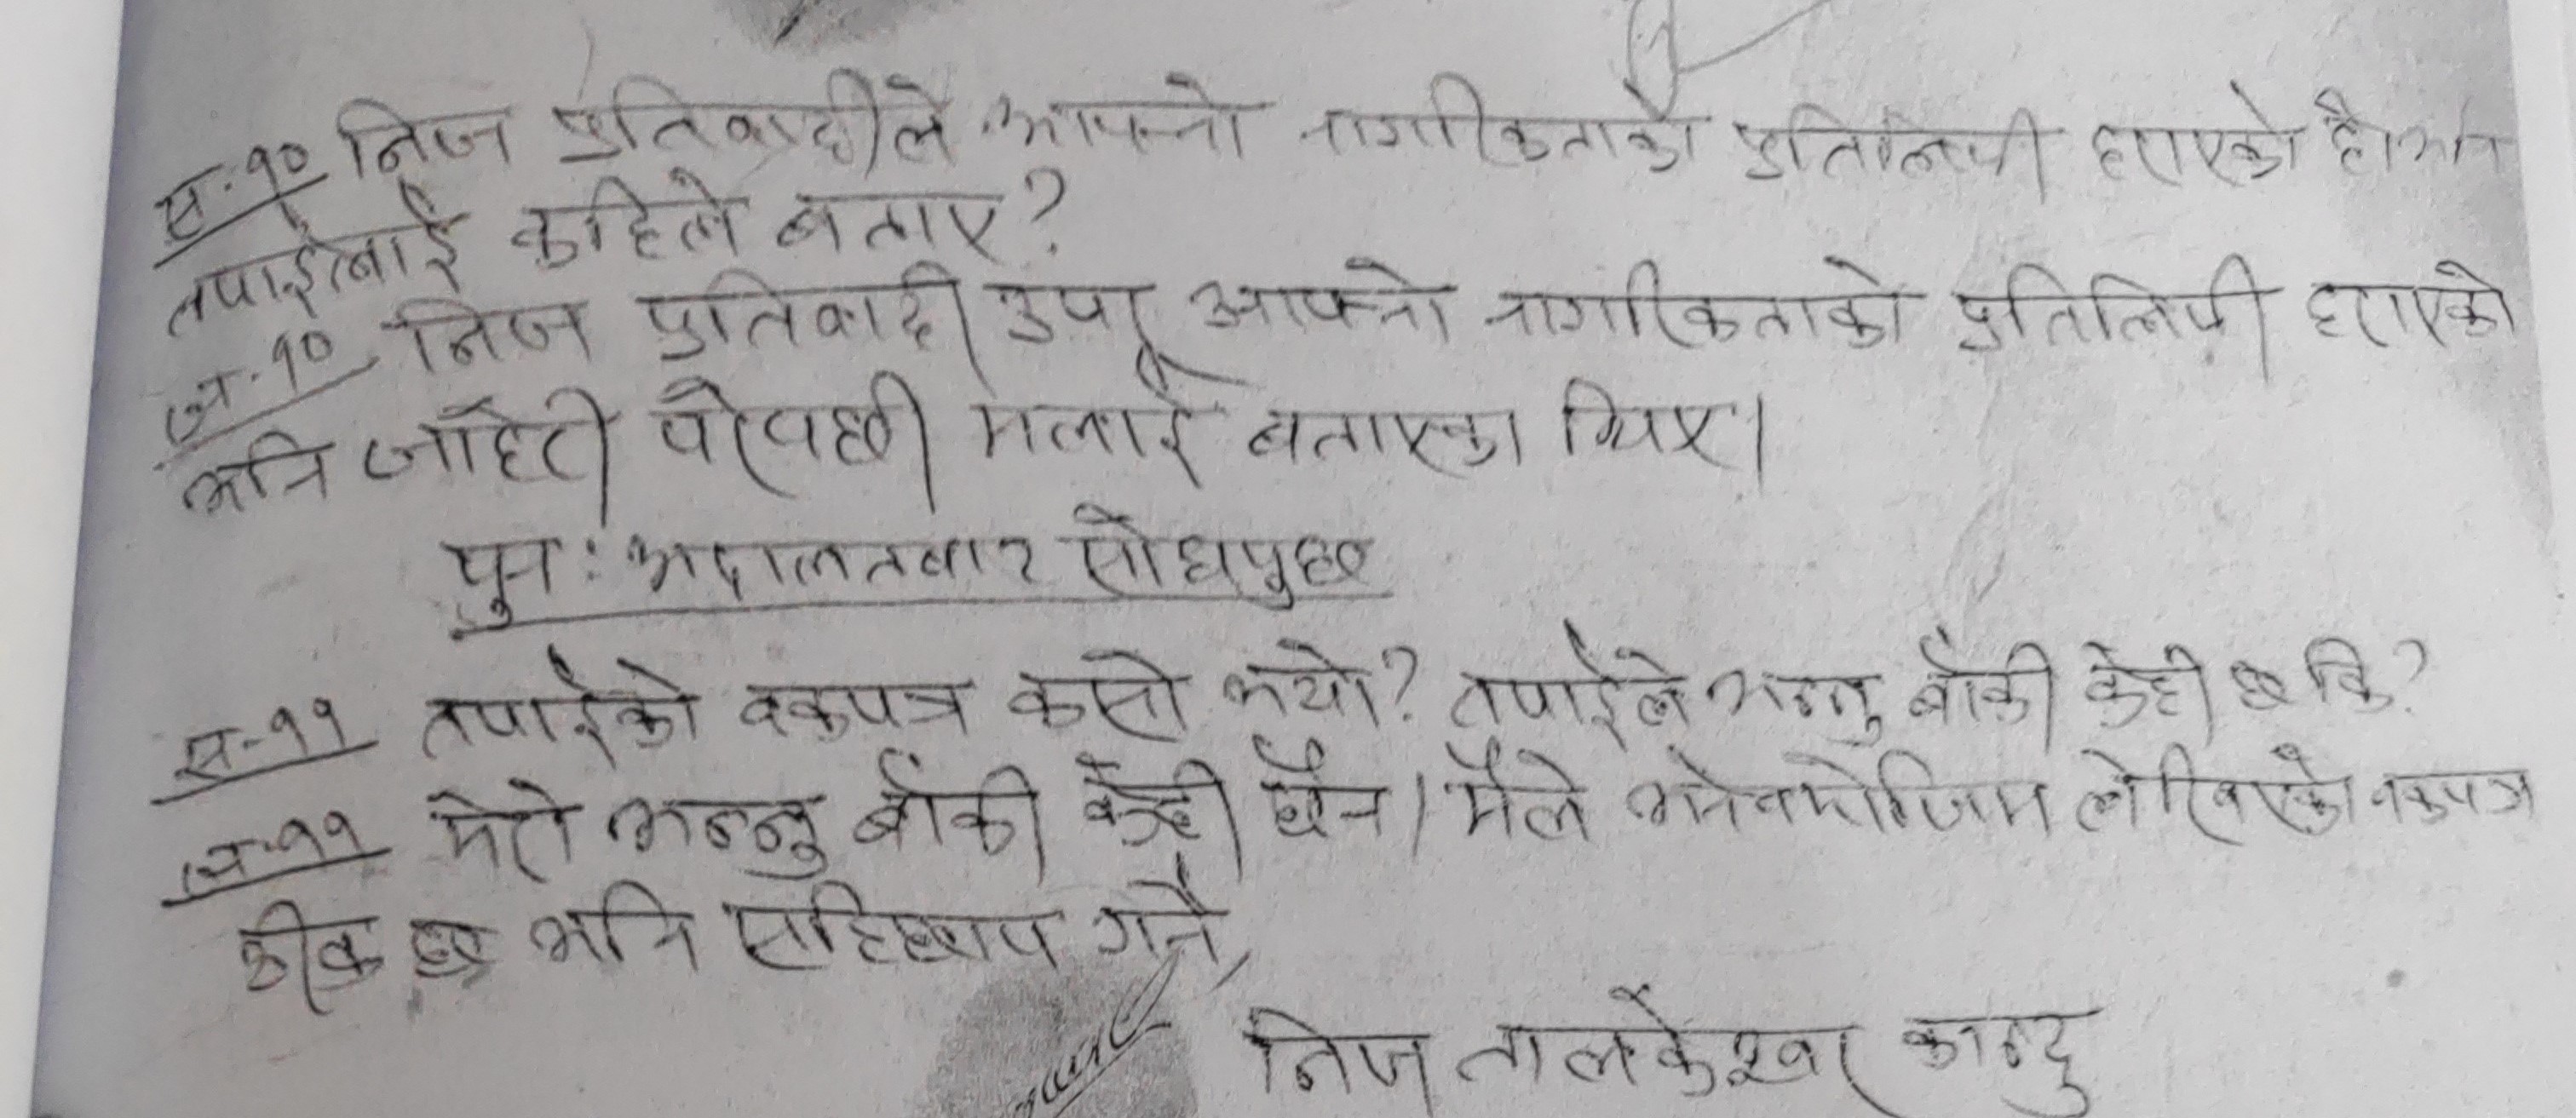 स.१० निज प्रतिवादीले आफ्नो नागरिकताको प्रतिलिपी हराएको हो भनि
तपाईलाई कहिले बताए?
ज.१० निज प्रतिवादी उपर आफ्नो नागरिकताको प्रतिलिपी हराएको
भनि जाहेरी परेपछी मलाई बताएका थिए।
पुन: अदालतबाट सोधपुछ
स-११ तपाईको वकपत्र कस्तो भयो? तपाईले भन्नु बाँकी केही छ कि?
ज-११ मेरो भन्नु बाँकी केही छैन। मैले भनेबमोजिम लेखिएको वकपत्र
ठीक छ भनि सहिछाप गर्ने,
निज तालकेश्वर कान्दु